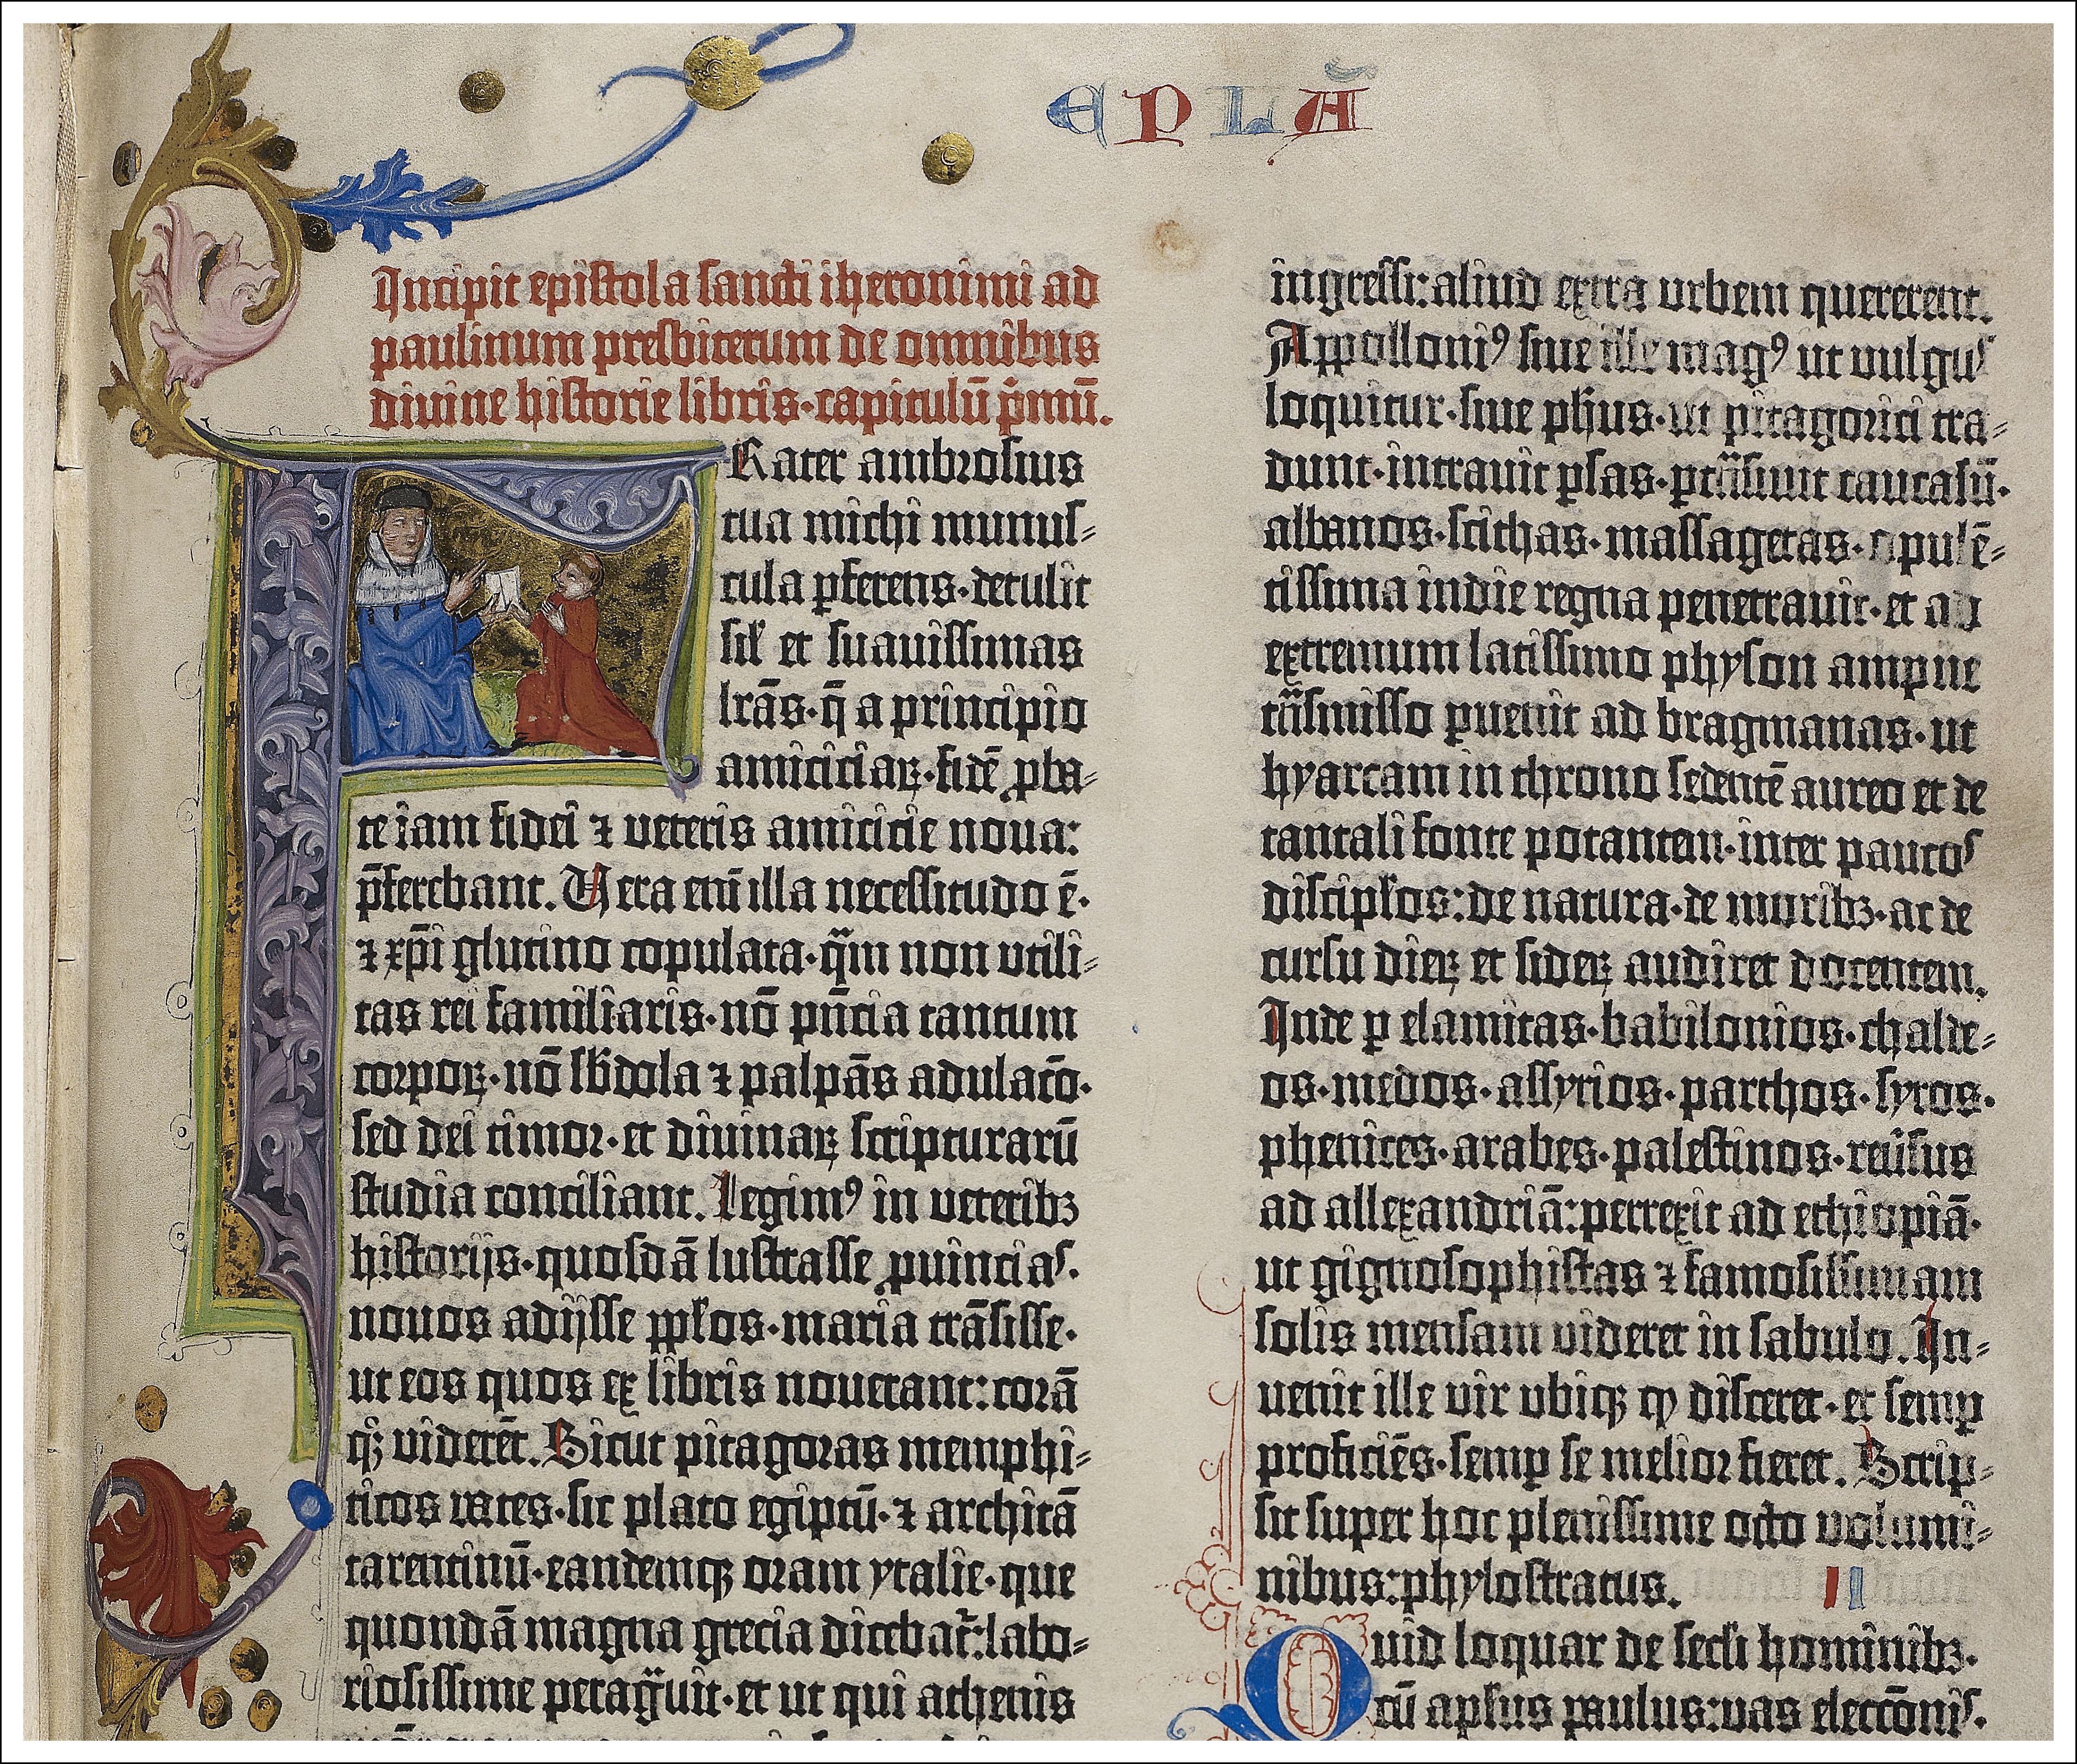 EPLA̅
Incipit epistola sancti iheronimi ad
paulinum presbiterum de omnibus
divine historie libris·capitulū p̄mū.
FRater ambrosius
tua michi munus-
cula ꝑferens·detulit
sil̛ et suavissimas
lr̄as·q̄ a principio
amiciciaꝝ·fidē ꝓba-
te iam fidei ⁊ veteris amicicie nova:
p̄ferebant. Vera enī illa necessitudo ē·
⁊ xp̄i glutino copulata·qͣm non utili-
tas rei familiaris·nō pn̄cia tantum
corpoꝝ·nō sb̛dola ⁊ palpās adulacō·
sed dei timor·et divinaꝝ scripturarū
studia conciliant. Legimꝰ in veteribꝫ
historijs·quosdā lustrasse ꝓvincias·
novos adijsse ppl̛os·maria trāsisse·
ut eos quos ex libris noverant: corā
qͦꝫ viderēt. Sicut pitagoras memphi-
ticos vates·sic plato egiptū·⁊ architā
tarentinū·eandemqꝫ oram ytalie·que
quondā magna grecia dicebat᷑: labo-
riosissime peragͣvit·et ut qui athenis
ingressi: aliud extra urbem quererent.
Appolloniꝰ sive ille magꝰ ut vulgus
loquitur·sive ph̛us·ut pitagorici tra-
dunt·intravit ꝑsas·ꝑtͣnsivit caucasū·
albanos·scithas·massagetas·opulē-
tissima indie regna penetravit·et ad
extremum latissimo physon ampne
tͣnsmisso ꝑvenit ad bragmanas·ut
hyarcam in throno sedentē aureo et de
tantali fonte potantem·inter paucos
discipl̛os: de natura·de moribꝫ·ac de
cursu dieꝝ et sideꝝ audiret docentem.
Inde ꝑ elamitas·babilonios·chalde-
os·medos·assyrios·parthos·syros·
phenices·arabes·palestinos·rev̛sus
ad allexandriā: perrexit ad ethiopiā·
ut gignosophistas ⁊ famosissimam
solis mensam videret in sabulo. In-
venit ille vir ubiqꝫ ꝙ disceret·et semꝑ
proficiēs·semꝑ se melior fieret. Scrip-
sit super hoc plenissime octo volumi-
nibus: phylostratus. II
QUid loquar de secl̛i hominibꝫ·
cū apl̛us paulus: vas eleccōnis·